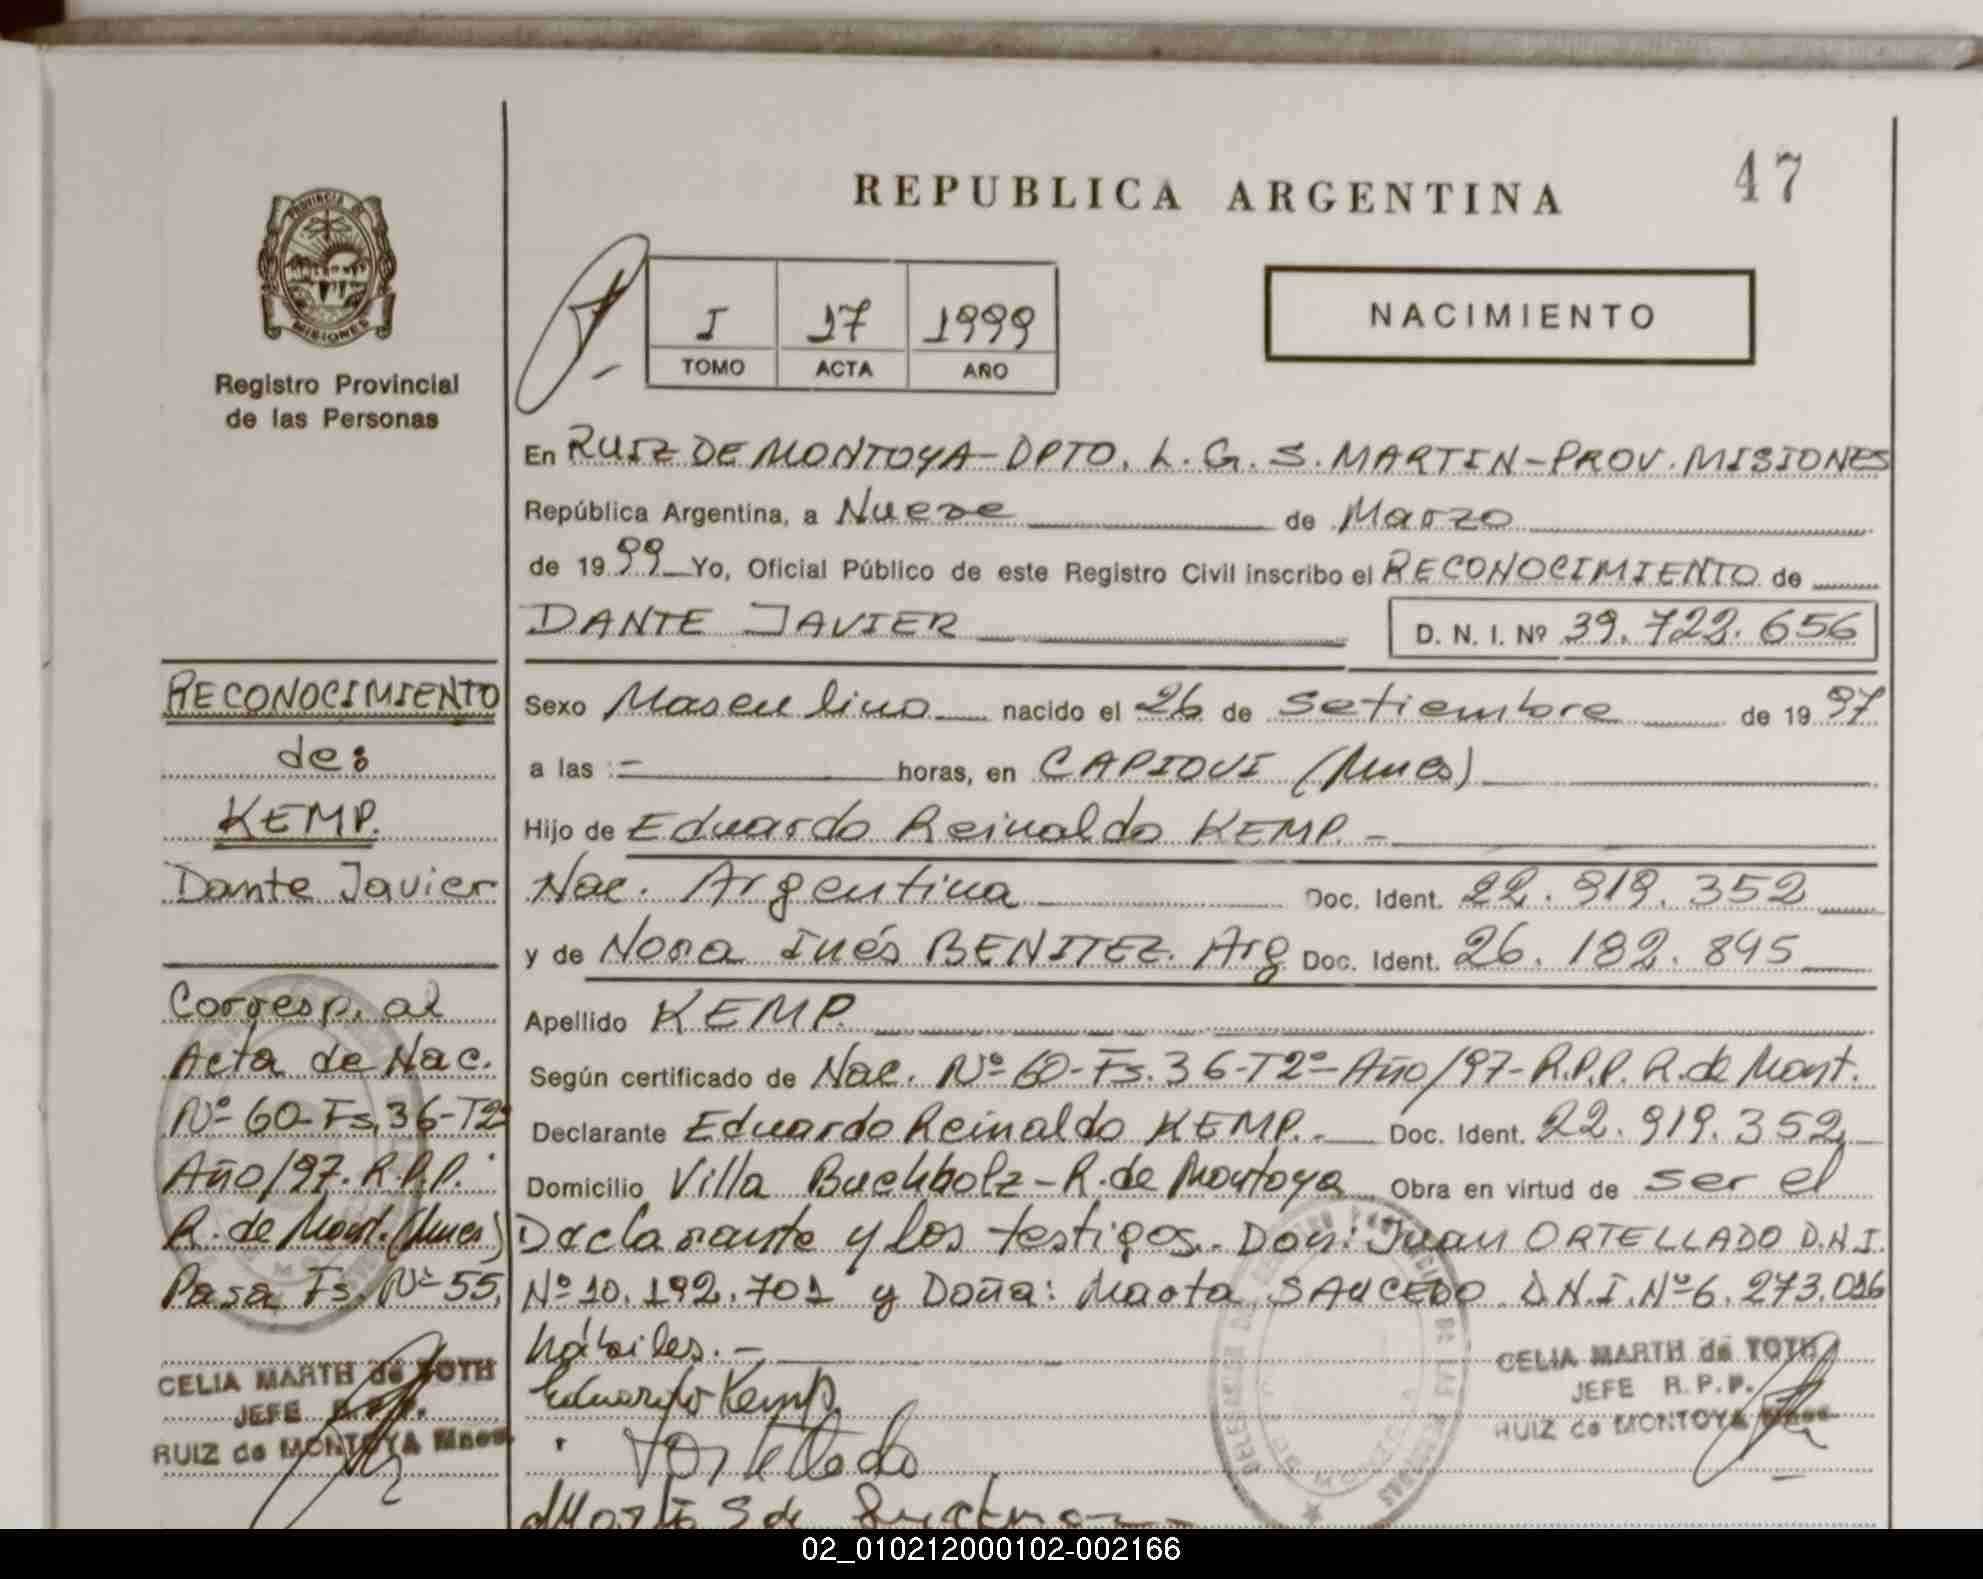 47
REPUBLICA ARGENTINA
PROVINCIA DE
MISIONES
Registro Provincial
de las Personas
I 17 1999
TOMO ACTA AÑO
NACIMIENTO
En RUIZ DE MONTOYA-DPTO. L. G. S. MARTIN-PROV. MISIONES
República Argentina, a Nueve de Marzo
de 1999 Yo, Oficial Público de este Registro Civil inscribo el RECONOCIMIENTO de
DANTE JAVIER D. N. I. Nº 39.722.656
Sexo Masculino nacido el 26 de Setiembre de 1997
a las :- horas, en CAPIOVI (Mnes)
Hijo de Eduardo Reinaldo KEMP.-
Nac. Argentina Doc. Ident. 22.919.352
y de Nora Inés BENITEZ. Arg Doc. Ident. 26.182.895
Apellido KEMP.
Según certificado de Nac. Nº 60-Fs.36-T2º-Año/97-R.P.P. R.de Mont.
Declarante Eduardo Reinaldo KEMP.- Doc. Ident. 22.919.352
Domicilio Villa Buchholz-R.de Montoya Obra en virtud de ser el
Declarante y los testigos.- Don: Juan ORTELLADO D.N.I.
Nº 10.192.701 y Doña: Marta SAUCEDO D.N.I.Nº 6.273.016
hábiles.-
Eduardo Kemp.
Ortellado
CELIA MARTH de TOTH
JEFE R.P.P.
RUIZ de MONTOYA Mnes.
RECONOCIMIENTO
de:
KEMP.
Dante Javier
Corresp. al
Acta de Nac.
Nº 60-Fs.36-T2º
Año/97. R.P.P.
R. de Mont. (Mnes)
Pasa Fs. Nº 55.
CELIA MARTH de TOTH
JEFE R.P.P.
RUIZ de MONTOYA Mnes.
02_010212000102-002166